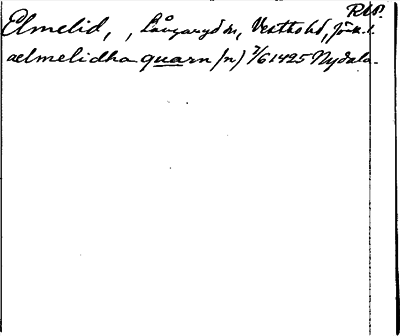 RAP.
Elmelid, , Långaryd sn, Västbo hd, Jön. l.
aelmelidha quarn (n) 7/6 1425 Nydala.